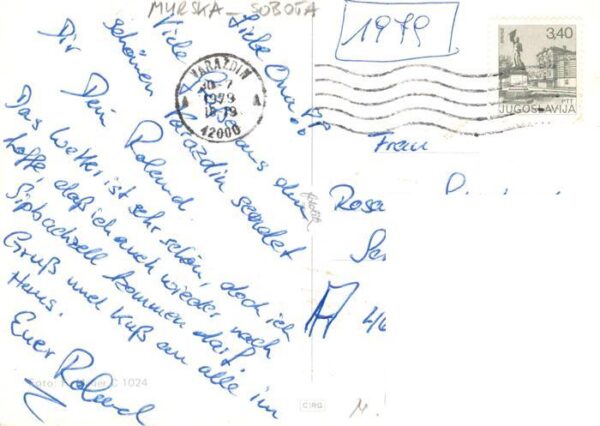 MURSKA – SOBOTA
1979
VARAŽDIN
1979
42000
3,40
PTT
JUGOSLAVIJA
Liebe Oma!
Viele Grüße aus dem
schönen Varazdin sendet
Dir Dein Roland.
Das Wetter ist sehr schön, doch ich
hoffe, daß ich auch wieder nach
Sipbachzell kommen darf.
Gruß und Kuß an alle im
Haus.
Euer Roland
Frau
Rosa
A
Foto:
C 1024